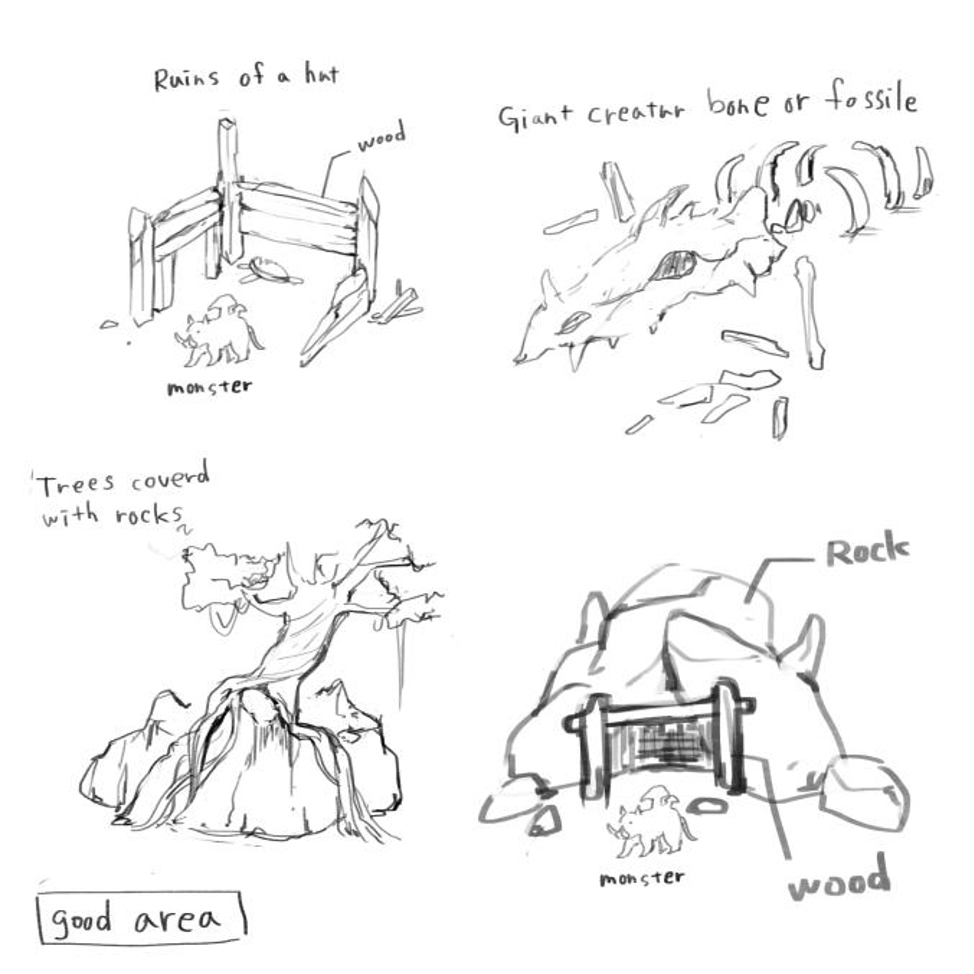 Ruins of a hut
wood
monster
Giant creatur bone or fossile
Trees coverd
with rocks
Rock
wood
monster
good area